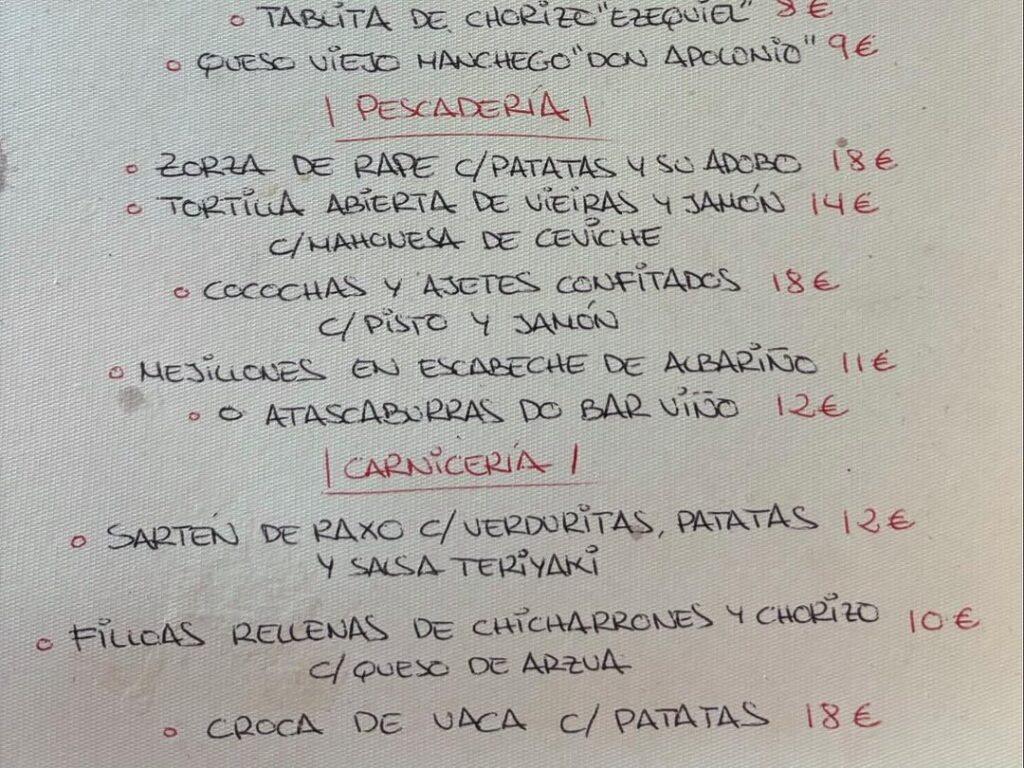 ○ TABLITA DE CHORIZO "EZEQUIEL" 8€
○ QUESO VIEJO MANCHEGO "DON APOLONIO" 9€
| PESCADERÍA |
○ ZORZA DE RAPE C/PATATAS Y SU ADOBO 18€
○ TORTILLA ABIERTA DE VIEIRAS Y JAMÓN 14€
C/MAHONESA DE CEVICHE
○ COCOCHAS Y AJETES CONFITADOS 18€
C/PISTO Y JAMÓN
○ MEJILLONES EN ESCABECHE DE ALBARIÑO 11€
○ O ATASCABURRAS DO BAR VIÑO 12€
| CARNICERÍA |
○ SARTÉN DE RAXO C/VERDURITAS, PATATAS 12€
Y SALSA TERIYAKI
○ FILLOAS RELLENAS DE CHICHARRONES Y CHORIZO 10€
C/QUESO DE ARZUA
○ CROCA DE VACA C/PATATAS 18€